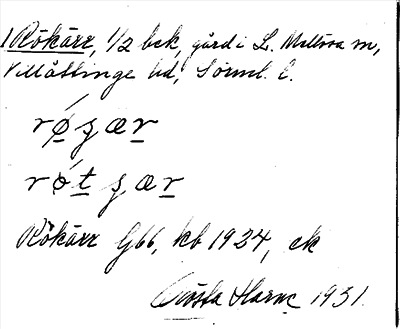 1 Rökärr, 1/2 bck, gård i L. Mellösa sn,
Villåttinge hd, Sörml. l.
rǿʂær
rǿtʂær
Rökärr G66, kb 1924, ek
Gösta Harne 1931.